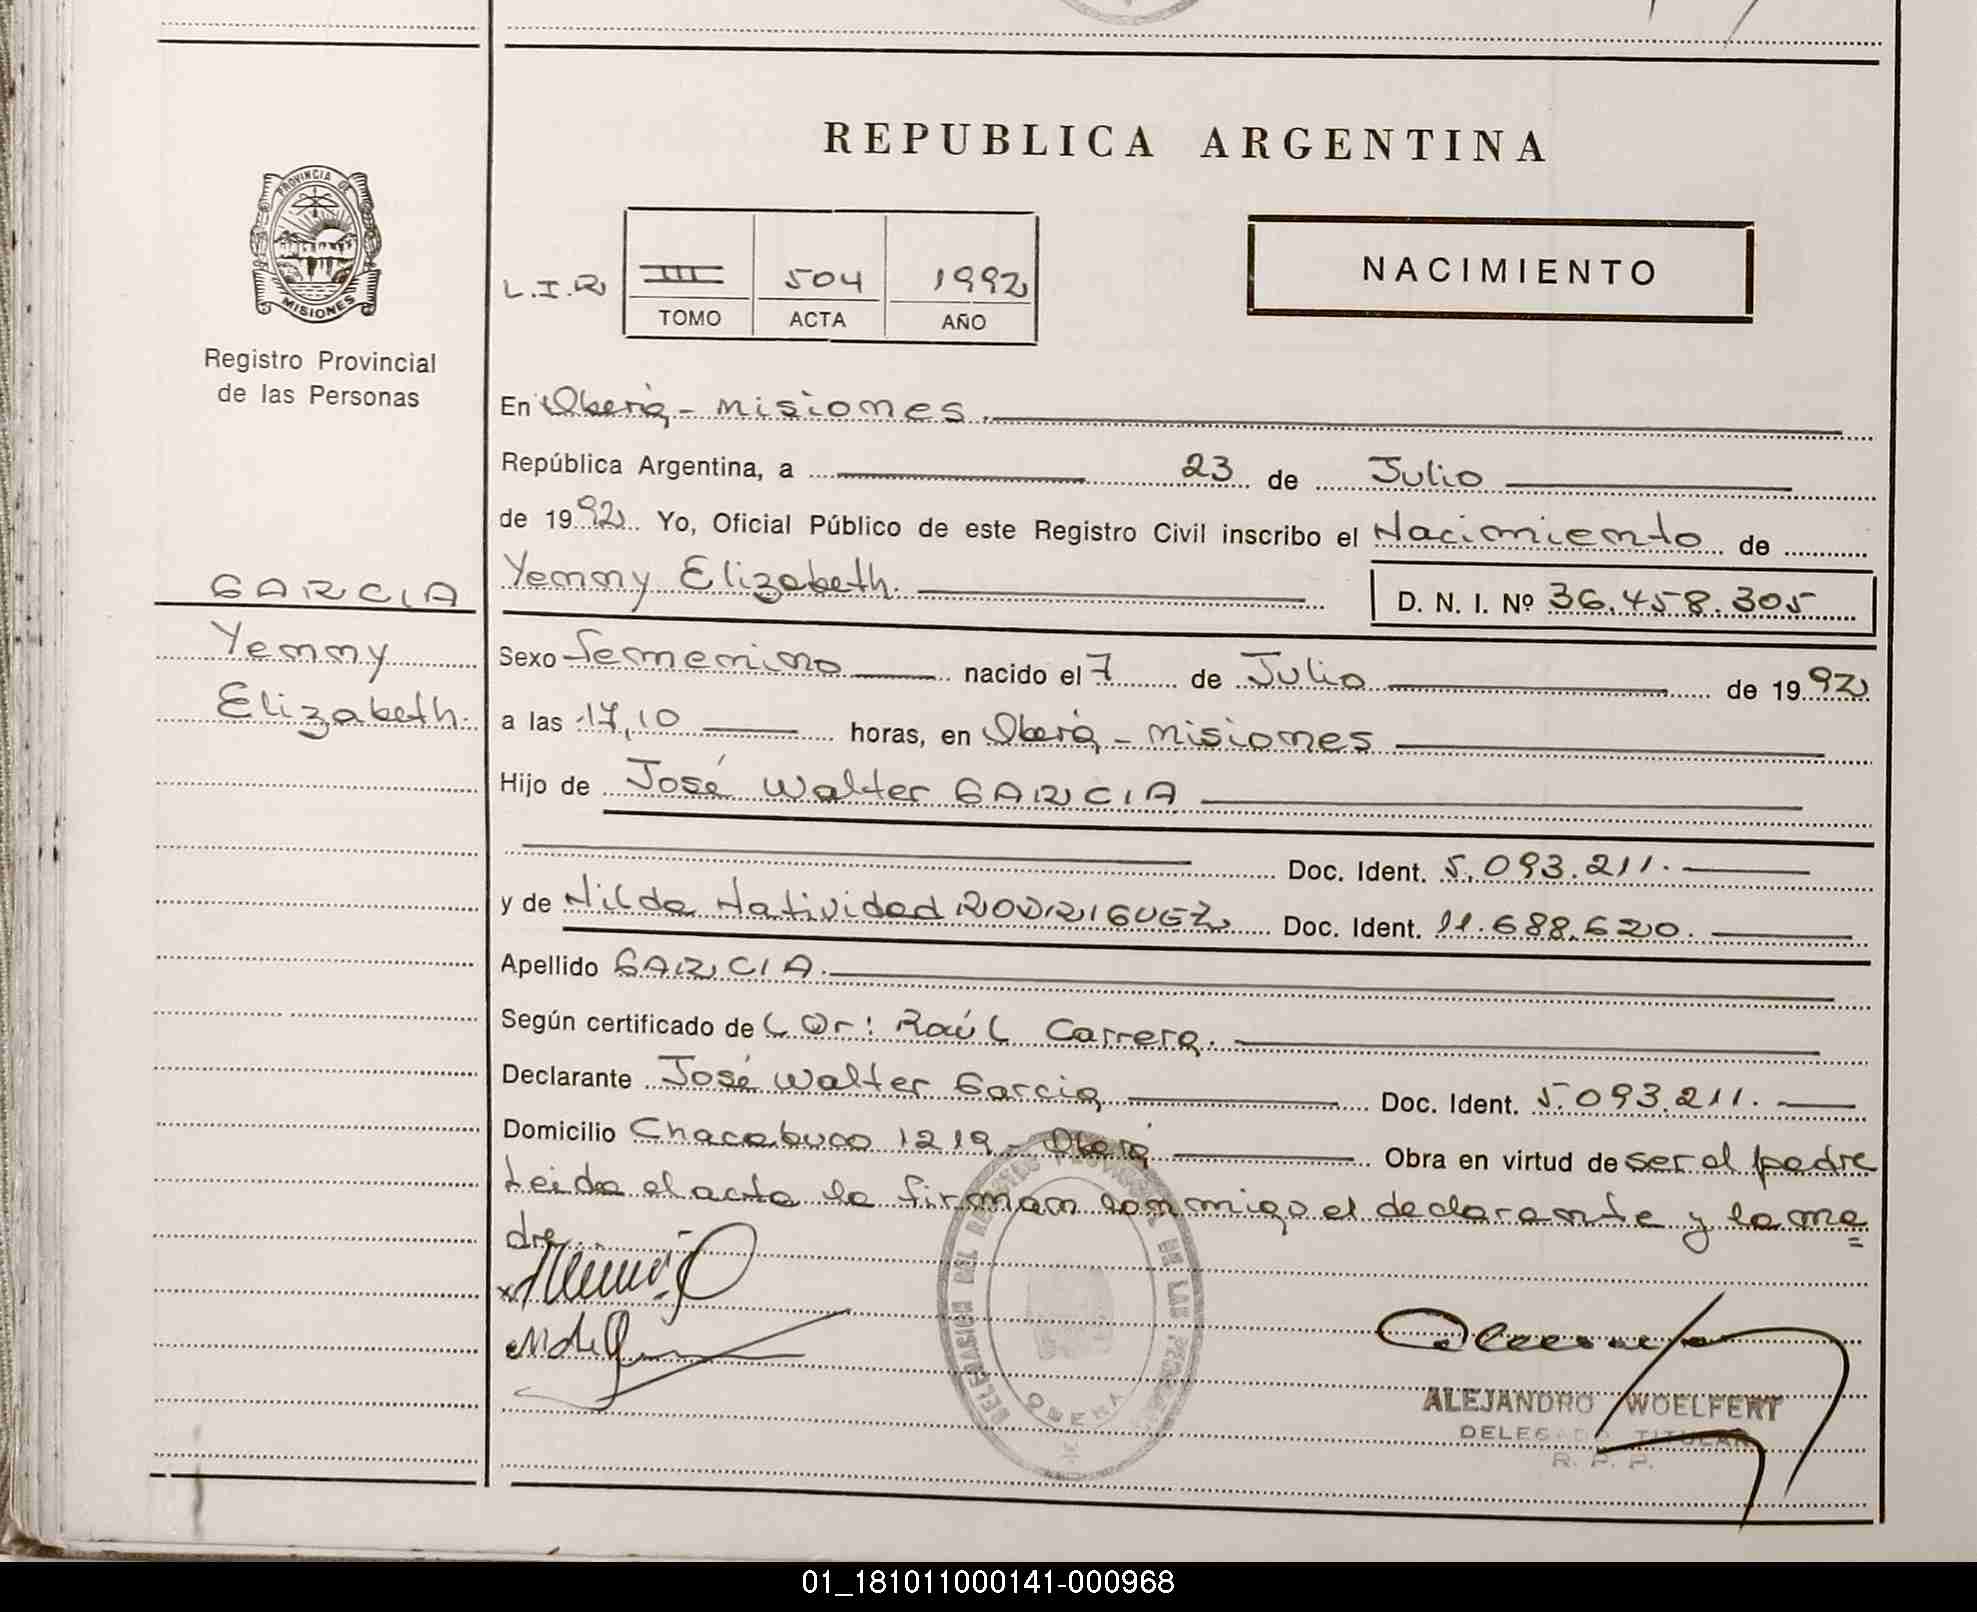 REPUBLICA ARGENTINA
PROVINCIA DE
MISIONES
Registro Provincial
de las Personas
NACIMIENTO
L.I.R III 504 1992
TOMO ACTA AÑO
En Oberá - Misiones
República Argentina, a 23 de Julio
de 1992 Yo, Oficial Público de este Registro Civil inscribo el Nacimiento de
Yemmy Elizabeth. D. N. I. Nº 36.458.305
GARCIA
Yemmy
Elizabeth.
Sexo femenino nacido el 7 de Julio de 1992
a las 17,10 horas, en Oberá - Misiones
Hijo de José Walter GARCIA
Doc. Ident. 5.093.211.
y de Nilda Natividad RODRIGUEZ Doc. Ident. 11.688.620.
Apellido GARCIA.
Según certificado de L Dr: Raúl Carrera.
Declarante José Walter Garcia Doc. Ident. 5.093.211.
Domicilio Chacabuco 1219 - Oberá Obra en virtud de ser el padre
Leida el acta la firman conmigo el declarante y la ma=
dre
DELEGASION DEL REGISTRO PROVINCIAL DE LAS PERSONAS
OBERA
ALEJANDRO WOELFERT
DELEGADO TITULAR
R. P. P.
01_181011000141-000968